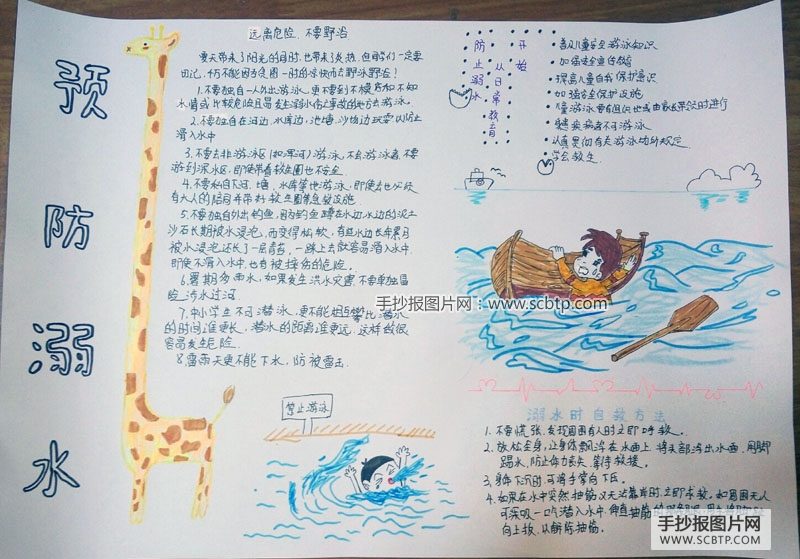 预
防
溺
水
远离危险 不要野浴
夏天带来了阳光的同时,也带来了炎热,但同学们一定要
牢记,千万不能因为贪图一时的凉快而去野外野浴!
1.不要独自一人外出游泳,更不要到不摸底和不知
水情或比较危险且易发生溺水伤亡事故的地方游泳。
2.不要独自在河边、水库边、池塘、沙场边玩耍以防止
滑入水中
3.不要去非游泳区(如浑河)游泳,不会游泳者,不要
游到深水区,即使带着救生圈也不安全
4.不要私自下河、塘、水库等地游泳,即使去也必须
有大人的陪同并带好救生圈等急救设施
5.不要独自外出钓鱼,因为钓鱼蹲在水边,水边的泥土
沙石长期被水浸泡,而变得松软,有些水边长年累月
被水浸泡还长了一层青苔,一踩上去就容易滑入水中,
即使不滑入水中,也有被摔伤的危险。
6.暑期多雨水,如果发生洪水灾害,不要单独冒
险涉水过河
7.中小学生不可潜泳,更不能相互攀比潜水
的时间谁更长,潜水的距离谁更远,这样做很
容易发生危险
8.雷雨天更不能下水,防被雷击
禁止游泳
防止溺水
从日常教育
开始
普及儿童安全游泳知识
加强安全宣传教育
提高儿童自我保护意识
加强安全保护设施
儿童游泳要有组织地或由家长带领时进行
疾病者不可游泳
认真贯彻有关游泳场所规定
学会救生
手抄报图片网:www.scbtp.com
溺水时自救方法
1.不要慌张,发现周围有人时立即呼救。
2.放松全身,让身体飘浮在水面上,将头部浮出水面,用脚
踢水,防止体力丧失,等待救援。
3.身体下沉时可将手掌向下压。
4.如果在水中突然抽筋又无法靠岸时,立即求救。如周围无人
可深吸一口气潜入水中,伸直抽筋的
向上扳,以解除抽筋。
手抄报图片网
WWW.SCBTP.COM